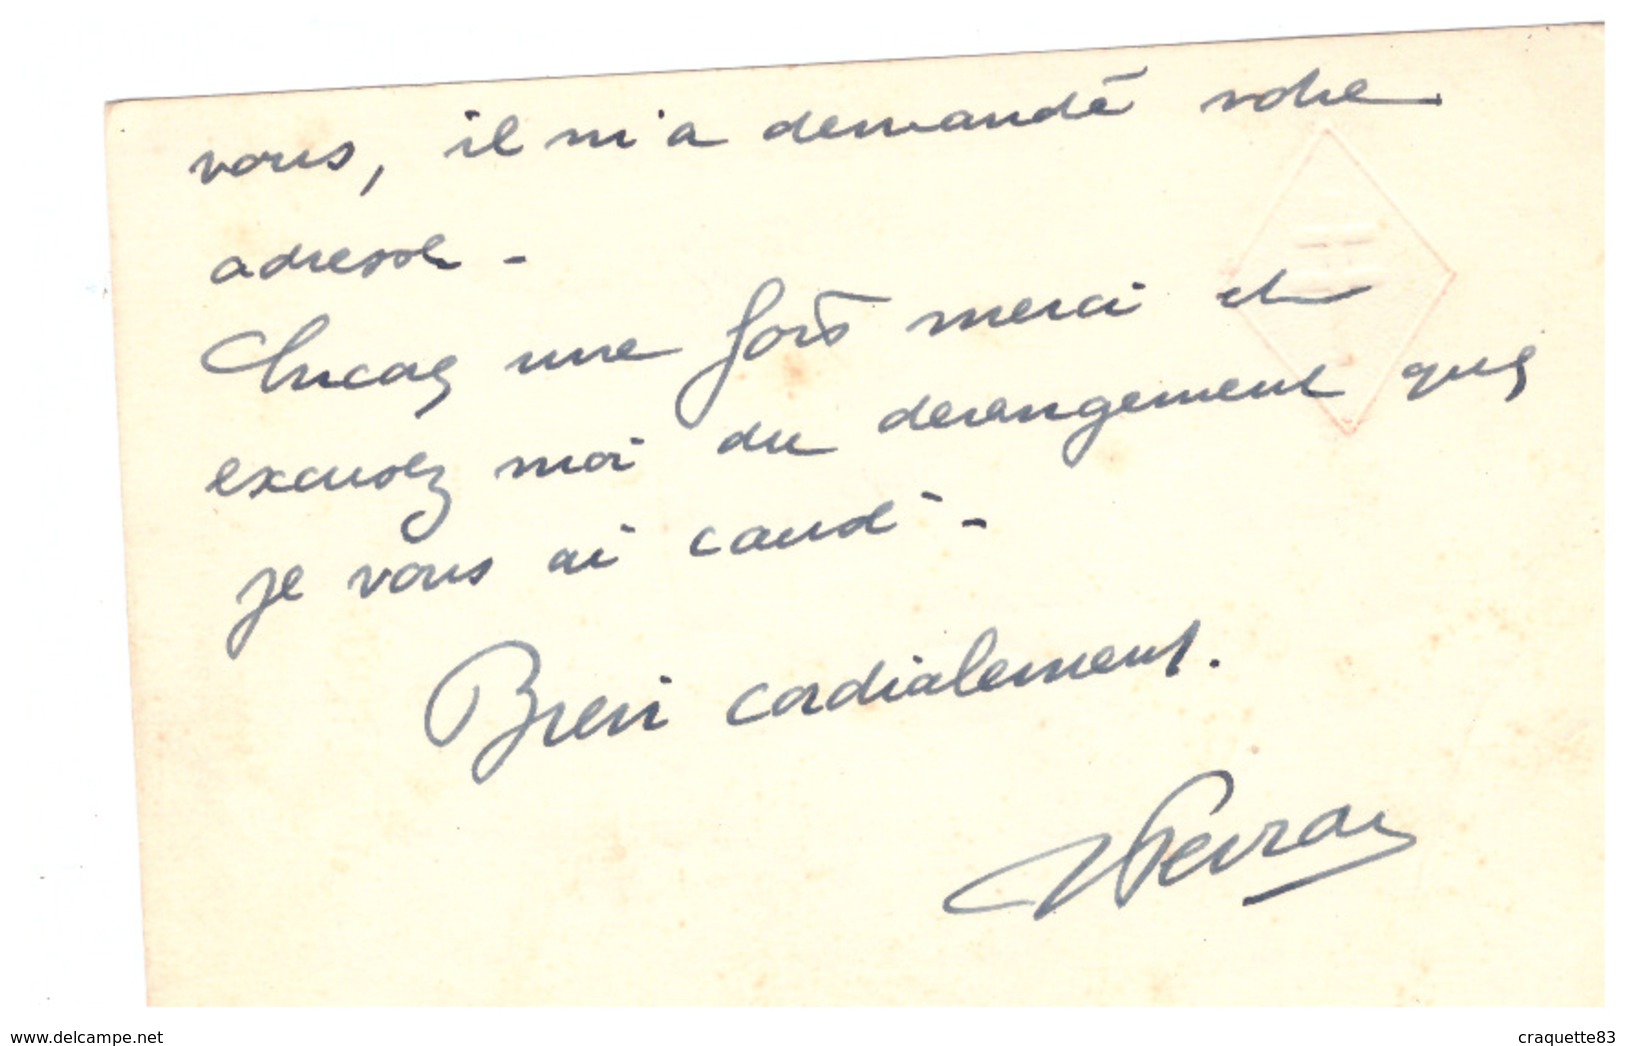 vous, il m'a demandé votre
adresse -
Encore une fois merci et
excusez moi du derangement que
je vous ai causé -
Bien cordialement.
www.delcampe.net
craquette83